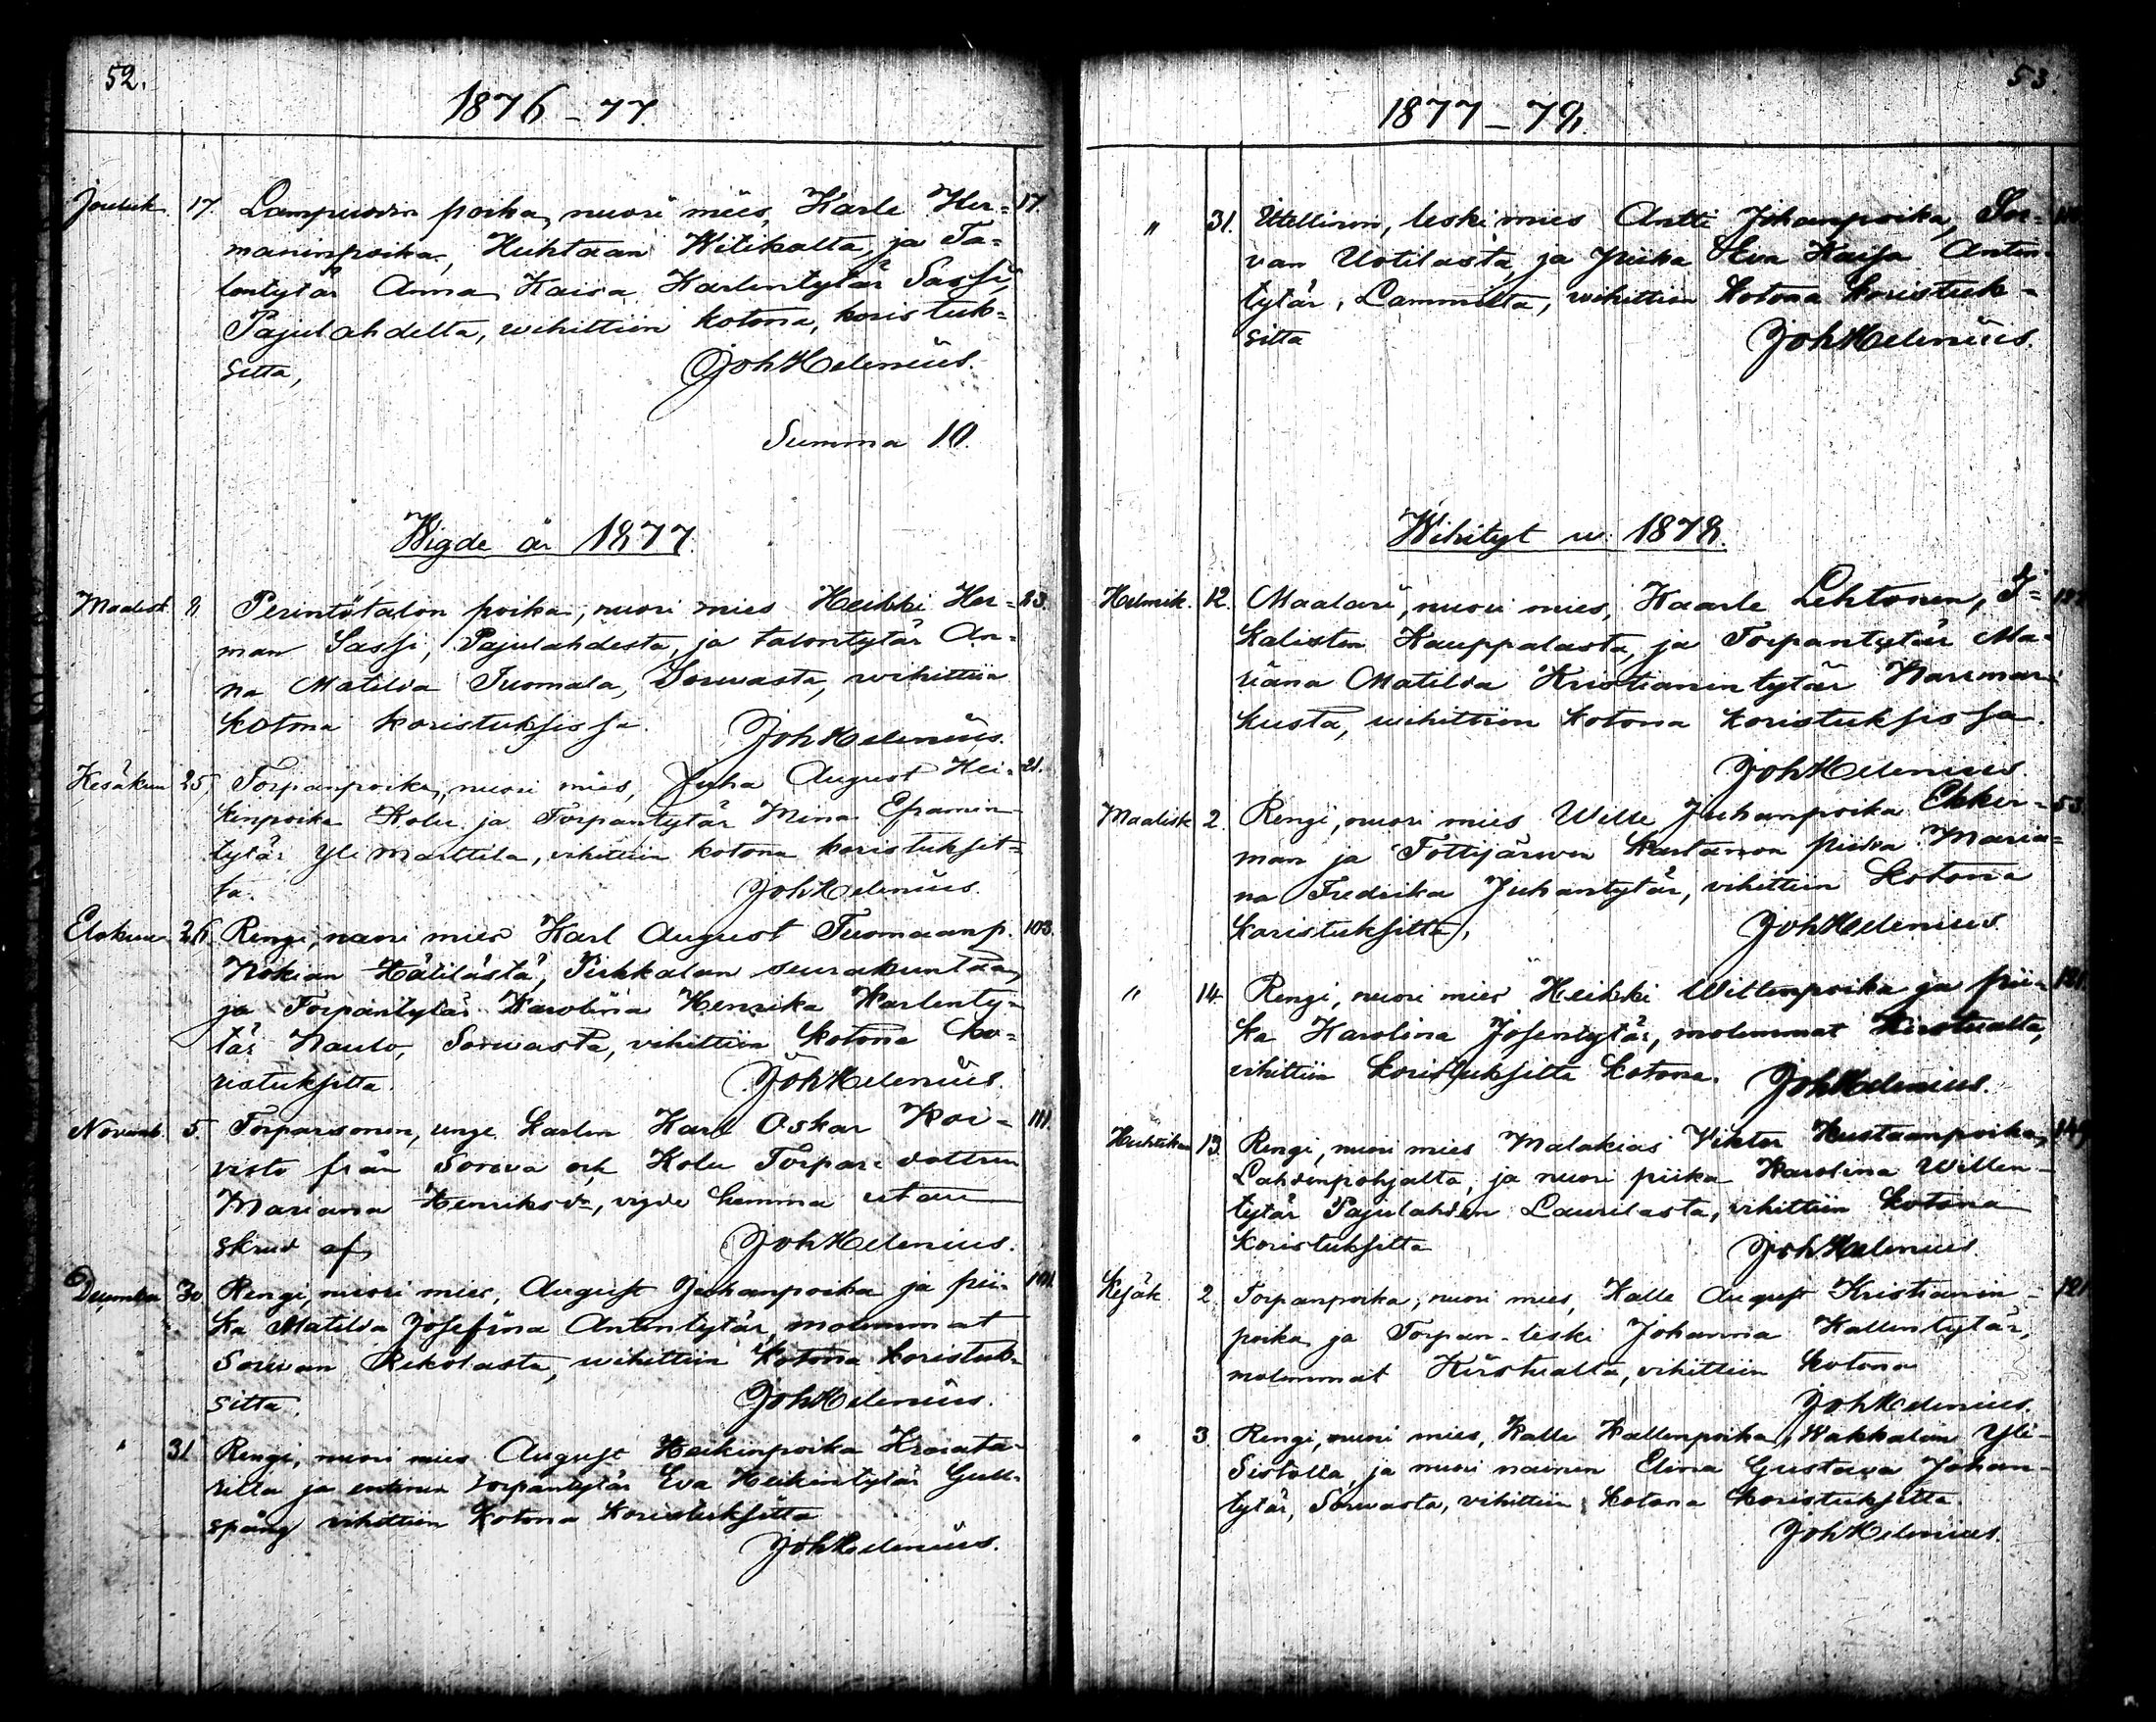 52.
1876-77.
Jouluk. 17. Lampuodin poika, nuori mies, Karle Her= 17.
maninpoika, Huhtaan Witikalta, ja Ta=
lontytär Anna Kaisa Karlentytär Sassi,
Pajulahdelta, wihittiin kotona, koristuk=
sitta, Joh Helenius.
Summa 10.
Wigde år 1877.
Maalisk. 11 Perintötalon poika, nuori mies Heikki Her= 23.
man Sassi, Pajulahdesta, ja talontytär An=
na Matilda Tuomala, Sorwasta, wihittiin
kotona koristuksissa. Joh Helenius.
Kesäkuu 25 Torpanpoika, nuori mies, Juha August Hei= 21.
kinpoika Kolu ja Torpantytär Mina Eframin=
tytär Yli Marttila, vihittiin kotona koristuksit=
ta. Joh Helenius.
Elokuu 26. Rengi, nuori mies Karl August Tuomaanp. 103.
Nokian Hätilästä, Pirkkalan seurakuntaa,
ja Torpantytär Karolina Henrika Karlenty=
tär Naulo, Sorwasta, vihittiin kotona ko=
ristuksitta. Joh Helenius.
Novemb. 5. Torparsonen, unge karlen Karl Oskar Koi= 111.
visto från Sorva och Kolu Torpare dottren
Mariana Henriksdr, vigde hemma utan
skrud af Joh Helenius.
December 30 Rengi, nuori mies, August Juhanpoika ja pii= 101.
ka Matilda Josefina Antintytär, molemmat
Sorwan Rekolasta, wihittiin kotona koristuk=
sitta. Joh Helenius.
" 31 Rengi, nuori mies August Heikinpoika
ja entinen torpantytär Eva Heikintytär Gull=
spång vihittiin kotona koristuksitta
Joh Helenius.
53.
1877-78.
" 31. Itellinen, leskimies Antti Johanpoika, Sor=
van Uotilasta ja Piika Eva Kaisa Antin=
tytär, Lammilta, wihittiin kotona koristuk=
sitta Joh Helenius.
Wihityt w. 1878.
Helmik. 12. Maalari, nuori mies, Kaarle Lehtonen, I=
kalisten Kauppalasta, ja Torpantytär Ma=
riana Matilda Kristianintytär Narvmar=
kusta, wihittiin kotona koristuksissa.
Joh Helenius.
Maalisk 2. Rengi, nuori mies Wille Juhanpoika Ekker= 53
man ja Tottijärwen kartanon piika Maria=
na Fredrika Juhantytär, vihittiin kotona
koristuksitta, Joh Helenius
" 14. Rengi, nuori mies Heikki Willenpoika ja pii= 121.
ka Karolina Josentytär, molemmat Kirstualta,
vihittiin koristuksitta kotona. Joh Helenius.
Huhtikuu 13. Rengi, nuori mies Malakias Viktor Kustaanpoika, 149
Lahdenpohjalta, ja nuori piika Karolina Willen=
tytär Pajulahden Laurilasta, vihittiin kotona
koristuksitta Joh Helenius.
Kesäk. 2. Torpanpoika, nuori mies, Kalle August Kristianin= 121
poika ja Torpan-leski Johanna Kallentytär,
molemmat Kirstualta, vihittiin kotona
Joh Helenius.
" 3 Rengi, nuori mies, Kalle Kallenpoika, Kakkalan Yli=
Sistolla, ja nuori nainen Elina Gustava Johan=
tytär, Sorwasta, vihittiin kotona koristuksitta.
Joh Helenius.